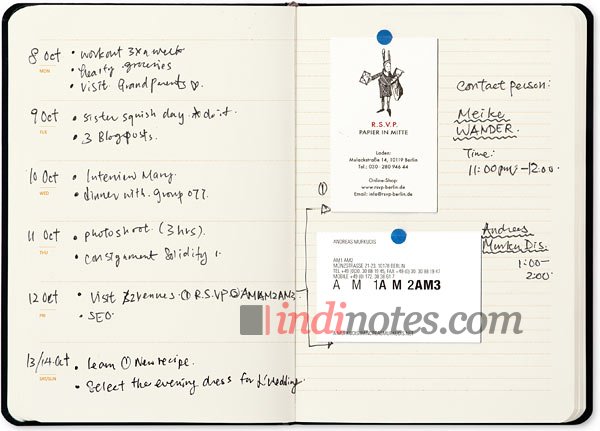 8 Oct
MON
• workout 3x a week
• healty groceries
• visit Grandparents ♡.
9 Oct
TUE
• sister squish day.
• 3 Blogposts.
10 Oct
WED
• Interview Mary.
• dinner with group 077.
11 Oct
THU
• photoshoot. (3 hrs).
• consignment Solidify
12 Oct
FRI
• Visit 2 venues. ① R.S.VP ② AM1AM2AM3.
• SEO.
13/14 Oct
SAT/SUN
• learn ① New recipe.
• Select the evening dress for Wedding
R.S.V.P.
PAPIER IN MITTE
Laden:
Mulackstraße 14, 10119 Berlin
Tel.: 030 - 280 946 44
Online-Shop:
www.rsvp-berlin.de
Email: info@rsvp-berlin.de
①
contact person:
Meike
WANDER.
Time:
11:00pm - 12:00.
ANDREAS MURKUDIS
AM1 AM2
MÜNZSTRASSE 21-23, 10178 BERLIN
MOBILE
A M 1A M 2AM3
Andreas
Murkudis.
1:00-
2:00.
indinotes.com